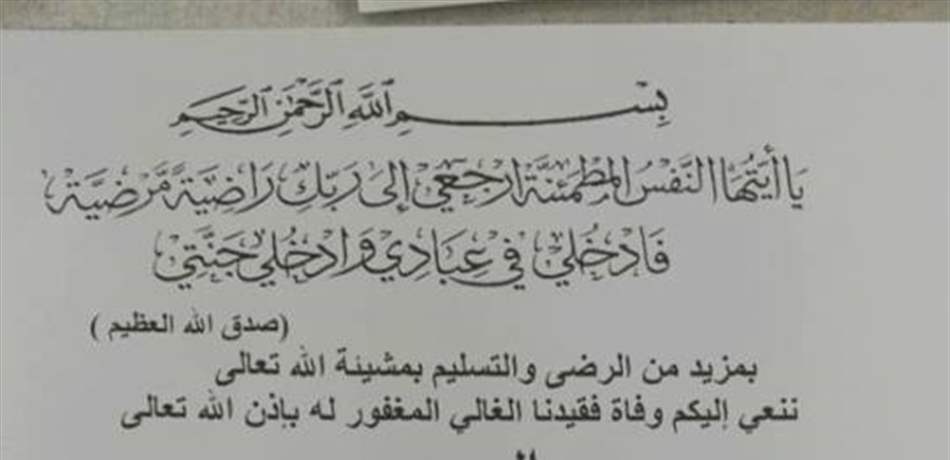 بِسْمِ اللَّهِ الرَّحْمَٰنِ الرَّحِيمِ
يَا أَيَّتُهَا النَّفْسُ المُطْمَئِنَّةُ ارْجِعِي إِلَى رَبِّكِ رَاضِيَةً مَّرْضِيَّةً
فَادْخُلِي فِي عِبَادِي وَادْخُلِي جَنَّتِي
(صدق الله العظيم )
بمزيد من الرضى والتسليم بمشيئة الله تعالى
ننعي إليكم وفاة فقيدنا الغالي المغفور له بإذن الله تعالى